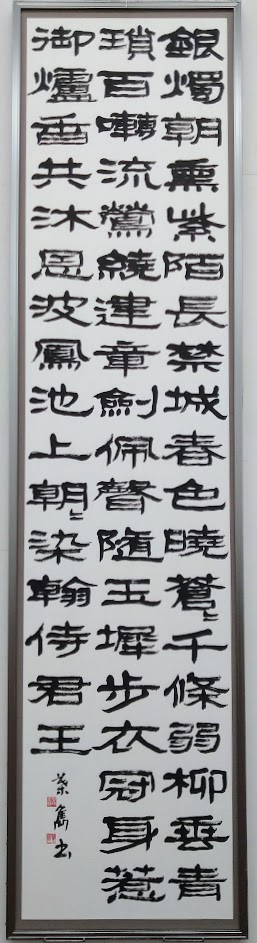 銀燭朝熏紫陌長禁城春色曉蒼〻千條弱柳垂青
瑣百囀流鶯繞建章劍佩聲隨玉墀步衣冠身惹
御爐香共沐恩波鳳池上朝〻染翰侍君王